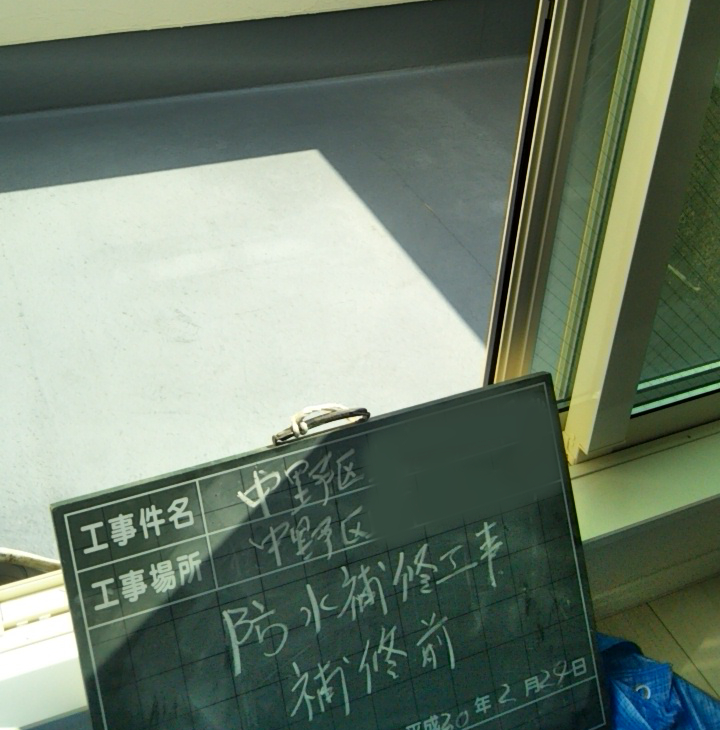 工事件名 中野区
工事場所 中野区
防水補修工事
補修前
平成30年2月24日